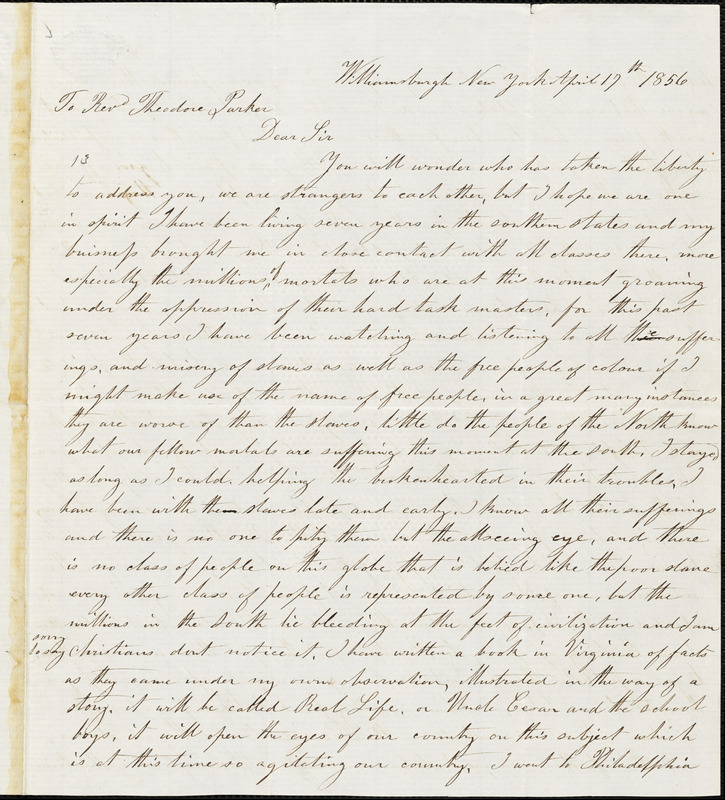 Williamsburgh New York April 17th 1856
To Revd Theodore Parker
Dear Sir
13 You will wonder who has taken the liberty
to address you, we are strangers to each other, but I hope we are one
in spirit I have been living seven years in the southern states and my
buisness brought me in close contact with all classes there, more
especially the millions, of mortals who are at this moment groaning
under the oppression of their hard task masters, for this past
seven years I have been watching and listening to all the suffer
ings, and misery of slaves as well as the free people of colour if I
might make use of the name of free people, in a great many instances
they are worse of than the slaves, little do the people of the North know
what our fellow mortals are suffering this moment at the South, I stayed
as long as I could helping the brokenhearted in their troubles, I
have been with the slaves late and early. I know all their sufferings
and there is no one to pity them but the allseeing eye, and there
is no class of people on this globe that is belied like the poor slave
every other class of people is represented by some one, but the
millions in the South lie bleeding at the feet of civilization and I am
sorry to say Christians dont notice it, I have written a book in Virginia of facts
as they came under my own observation, illustrated in the way of a
story, it will be called Real Life, or Uncle Cesar and the school
boys, it will open the eyes of our country on this subject which
is at this time so agitating our country, I went to Philadelphia